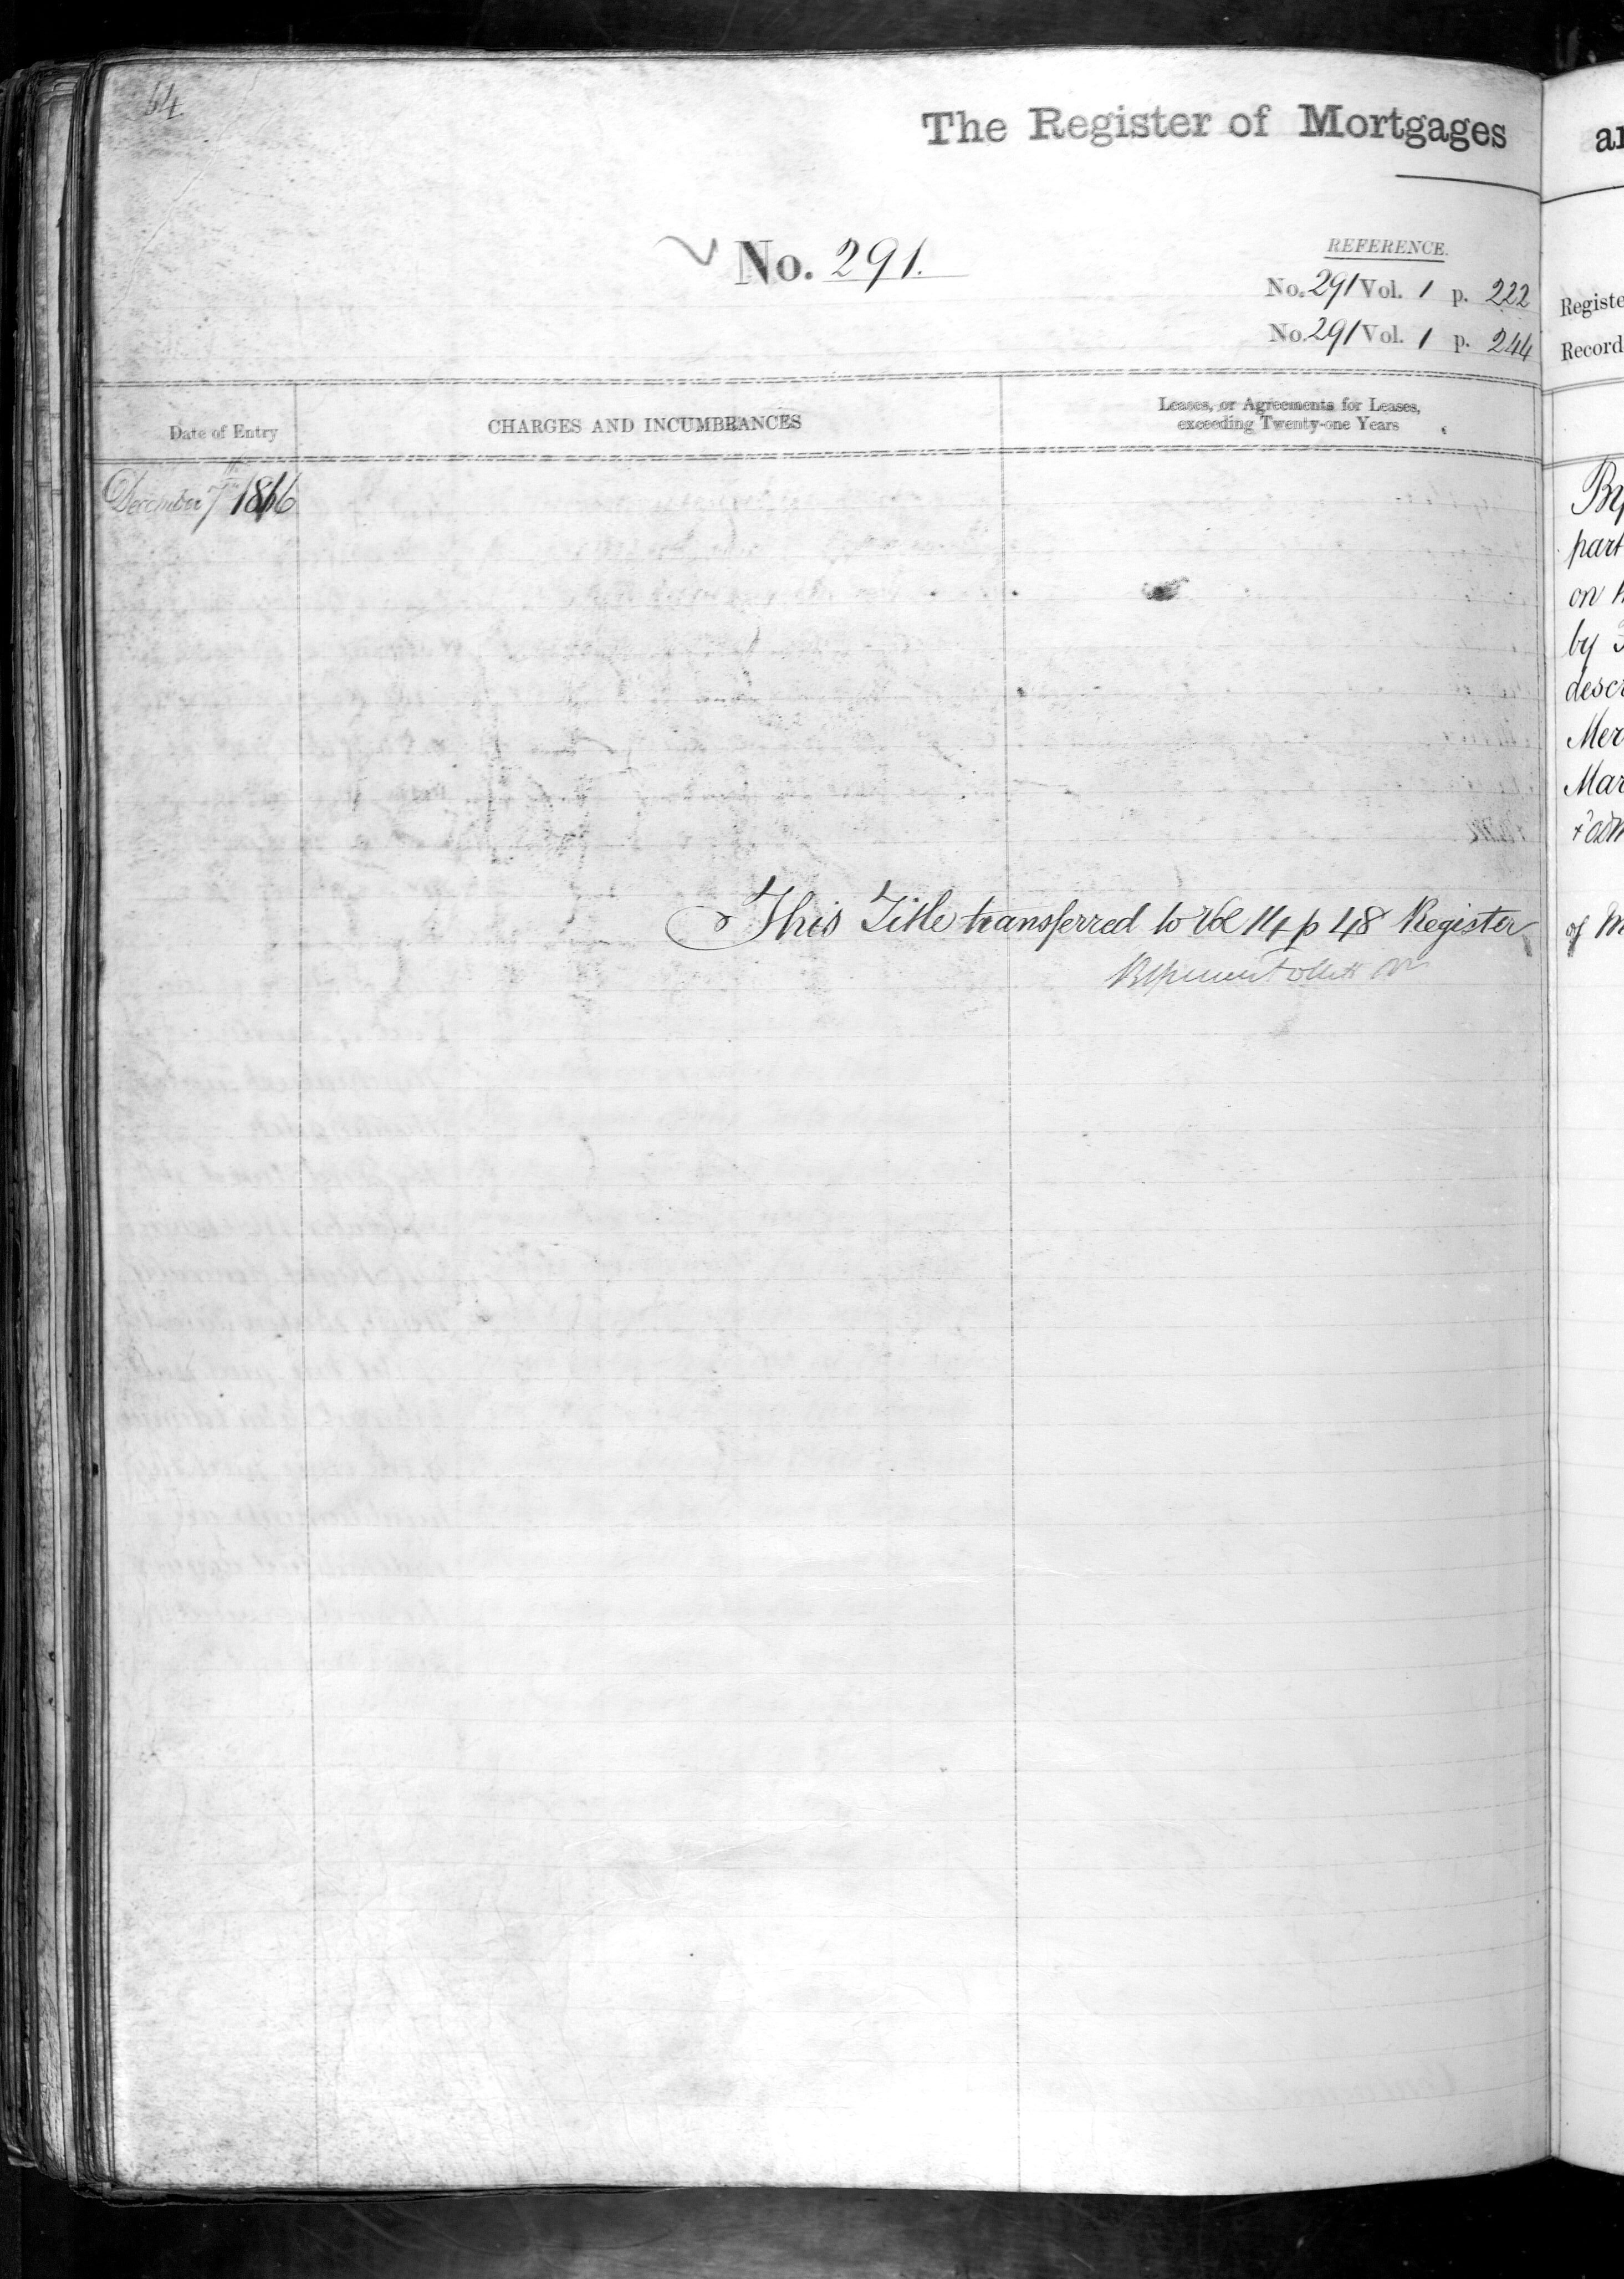 64
The Register of Mortgages
No. 291.
REFERENCE.
No. 291 Vol. 1 p. 222
No. 291 Vol. 1 p. 244
Date of Entry
CHARGES AND INCUMBRANCES
Leases, or Agreements for Leases,
exceeding Twenty-one Years
December 7th 1866
This Title transferred to Vol 14 p 48 Register
Registe
Record
part
on
by
descr
Mer
Mar
of